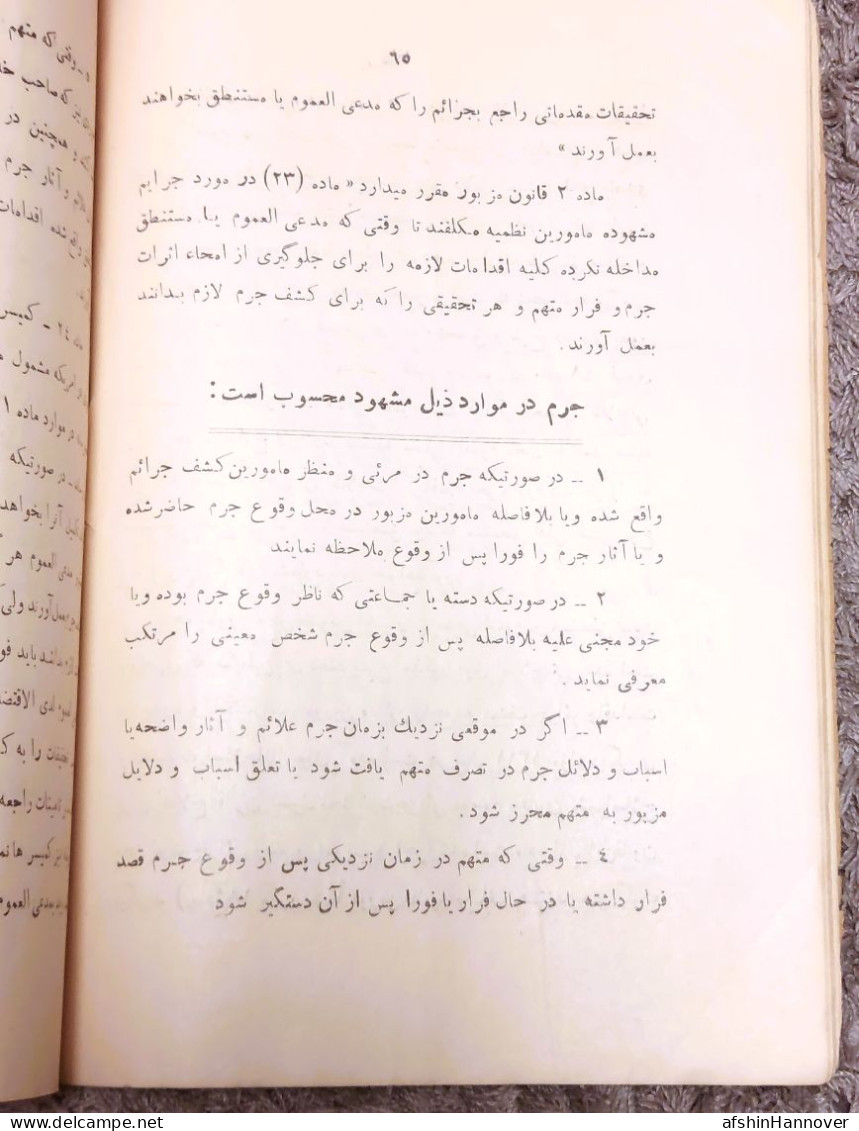 ٦٥
تحقیقات مقدماتی راجع بجرائم را که مدعی العموم یا مستنطق بخواهند
بعمل آورند»
ماده ۲ قانون مزبور مقرر میدارد «ماده (۲۳) در مورد جرایم
مشهوده مامورین نظمیه مکلفند تا وقتی که مدعی العموم یا مستنطق
مداخله نکرده کلیه اقدامات لازمه را برای جلوگیری از امحاء اثرات
جرم و فرار متهم و هر تحقیقی را که برای کشف جرم لازم بدانند
بعمل آورند.
جرم در موارد ذیل مشهود محسوب است:
۱ ــ در صورتیکه جرم در مرئی و منظر مامورین کشف جرائم
واقع شده ویا بلافاصله مامورین مزبور در محل وقوع جرم حاضر شده
و یا آثار جرم را فورا پس از وقوع ملاحظه نمایند
۲ ــ در صورتیکه دسته یا جماعتی که ناظر وقوع جرم بوده ویا
خود مجنی علیه بلافاصله پس از وقوع جرم شخص معینی را مرتکب
معرفی نماید.
۳ ــ اگر در موقعی نزدیك بزمان جرم علائم و آثار واضحه یا
اسباب و دلائل جرم در تصرف متهم یافت شود یا تعلق اسباب و دلایل
مزبور به متهم محرز شود.
٤ ــ وقتی که متهم در زمان نزدیکی پس از وقوع جرم قصد
فرار داشته یا در حال فرار یا فورا پس از آن دستگیر شود
ــ وقتی که متهم
که صاحب
و همچنین در
و آثار جرم
شده اقدامات
٢٤ ــ کمیسر
مشمول
در موارد ماده ۱
در صورتیکه
آنرا بخواهد
مدعی العموم هر
بعمل آورند ولی
باشد باید
لدی الاقتضا
تحقیقات را به
تامینات راجعه
کمیسر ها
مدعی العموم
delcampe.net
afshinHannover